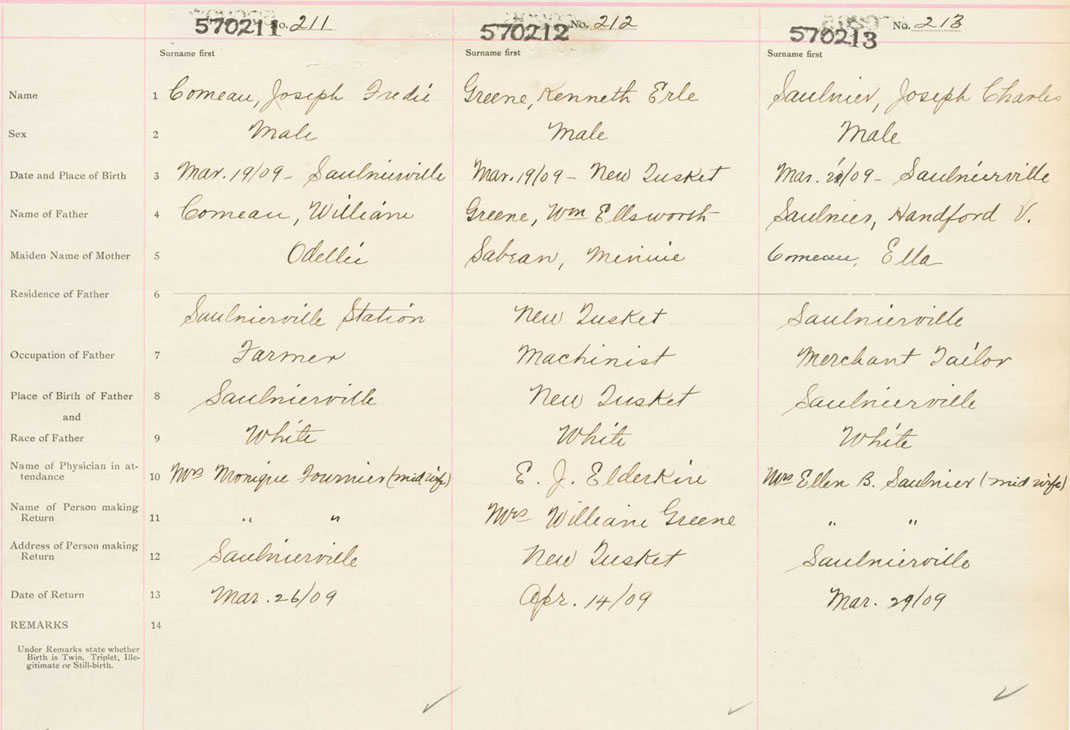 570211 No. 211 570212 No. 212 570213 No. 213
Surname first Surname first Surname first
Name 1 Comeau, Joseph Fredie Greene, Kenneth Erle Saulnier, Joseph Charles
Sex 2 Male Male Male
Date and Place of Birth 3 Mar. 19/09 - Saulnierville Mar. 19/09 - New Tusket Mar. /09 - Saulnierville
Name of Father 4 Comeau, William Greene, Wm Ellsworth Saulnier, Handford V.
Maiden Name of Mother 5 Odellie Sabean, Minnie Comeau, Ella
Residence of Father 6
Saulnierville Station New Tusket Saulnierville
Occupation of Father 7 Farmer Machinist Merchant Tailor
Place of Birth of Father 8 Saulnierville New Tusket Saulnierville
and
Race of Father 9 White White White
Name of Physician in at-
tendance 10 Mrs Monique Fournier (mid wife) E. J. Elderkin Mrs Ellen B. Saulnier (mid wife)
Name of Person making
Return 11 " " Mrs William Greene " "
Address of Person making
Return 12 Saulnierville New Tusket Saulnierville
Date of Return 13 Mar. 26/09 Apr. 14/09 Mar. 29/09
REMARKS 14
Under Remarks state whether
Birth is Twin, Triplet, Ille-
gitimate or Still-birth.